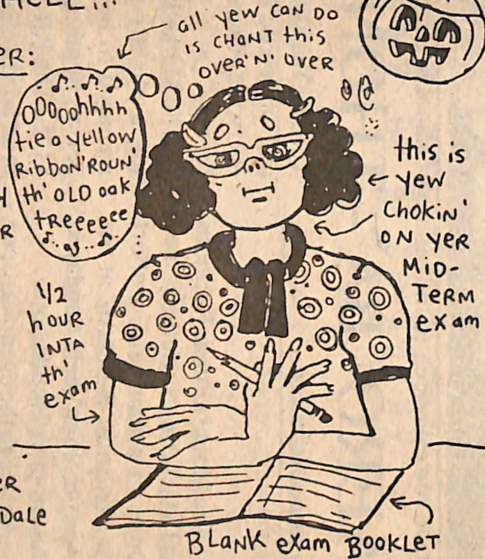 HELL!!!
all yew CAN DO
is CHANT this
OVER'N' OVER
ER:
OOOOOhhhh
tie a yellow
RibboN'ROUN'
th' OLD oak
tReeeeee
this is
yew
CHOKIN'
ON YER
MID-
TERM
exam
1/2
hOUR
INTA
th'
exam
ER
Dale
BLANK exam BOOKLET